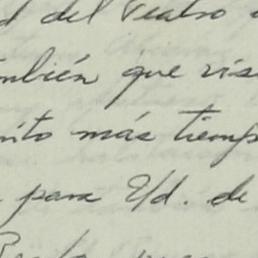 del Teatro
también que vis
más tiemp
para Ud. de